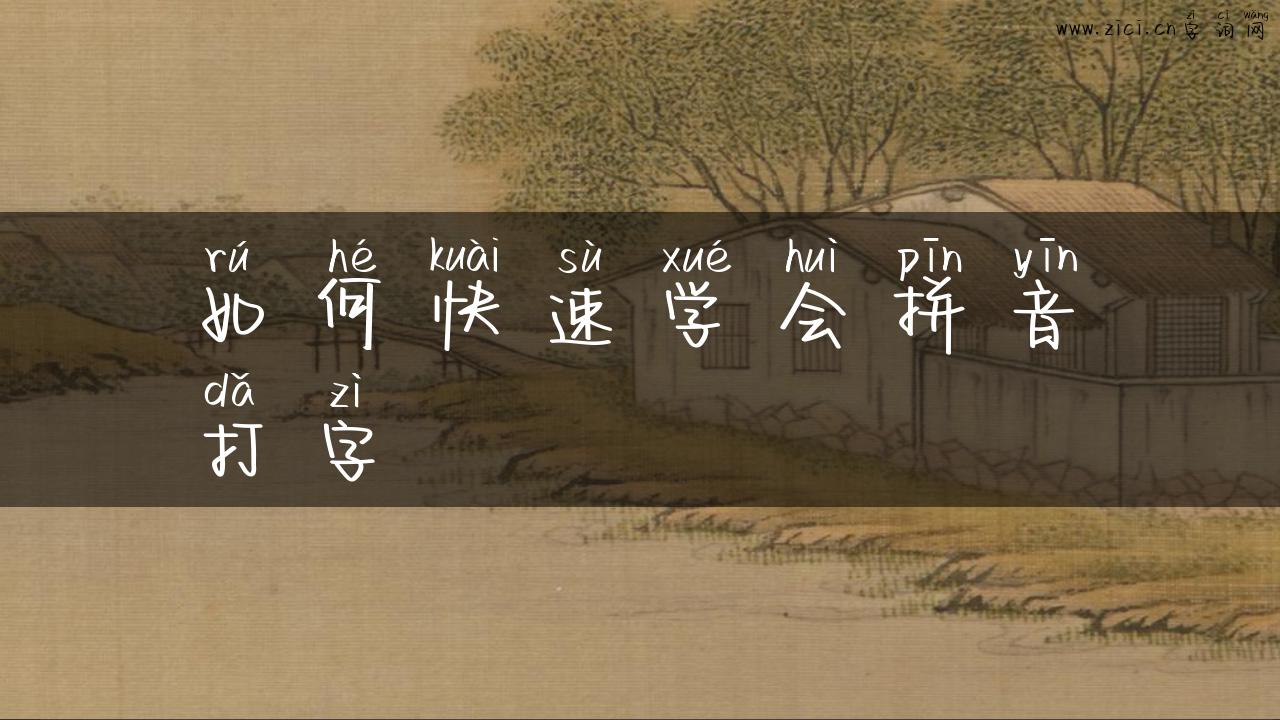 zì cí wǎng
www.zici.cn 字词网
rú hé kuài sù xué huì pīn yīn
如何快速学会拼音
dǎ zì
打字